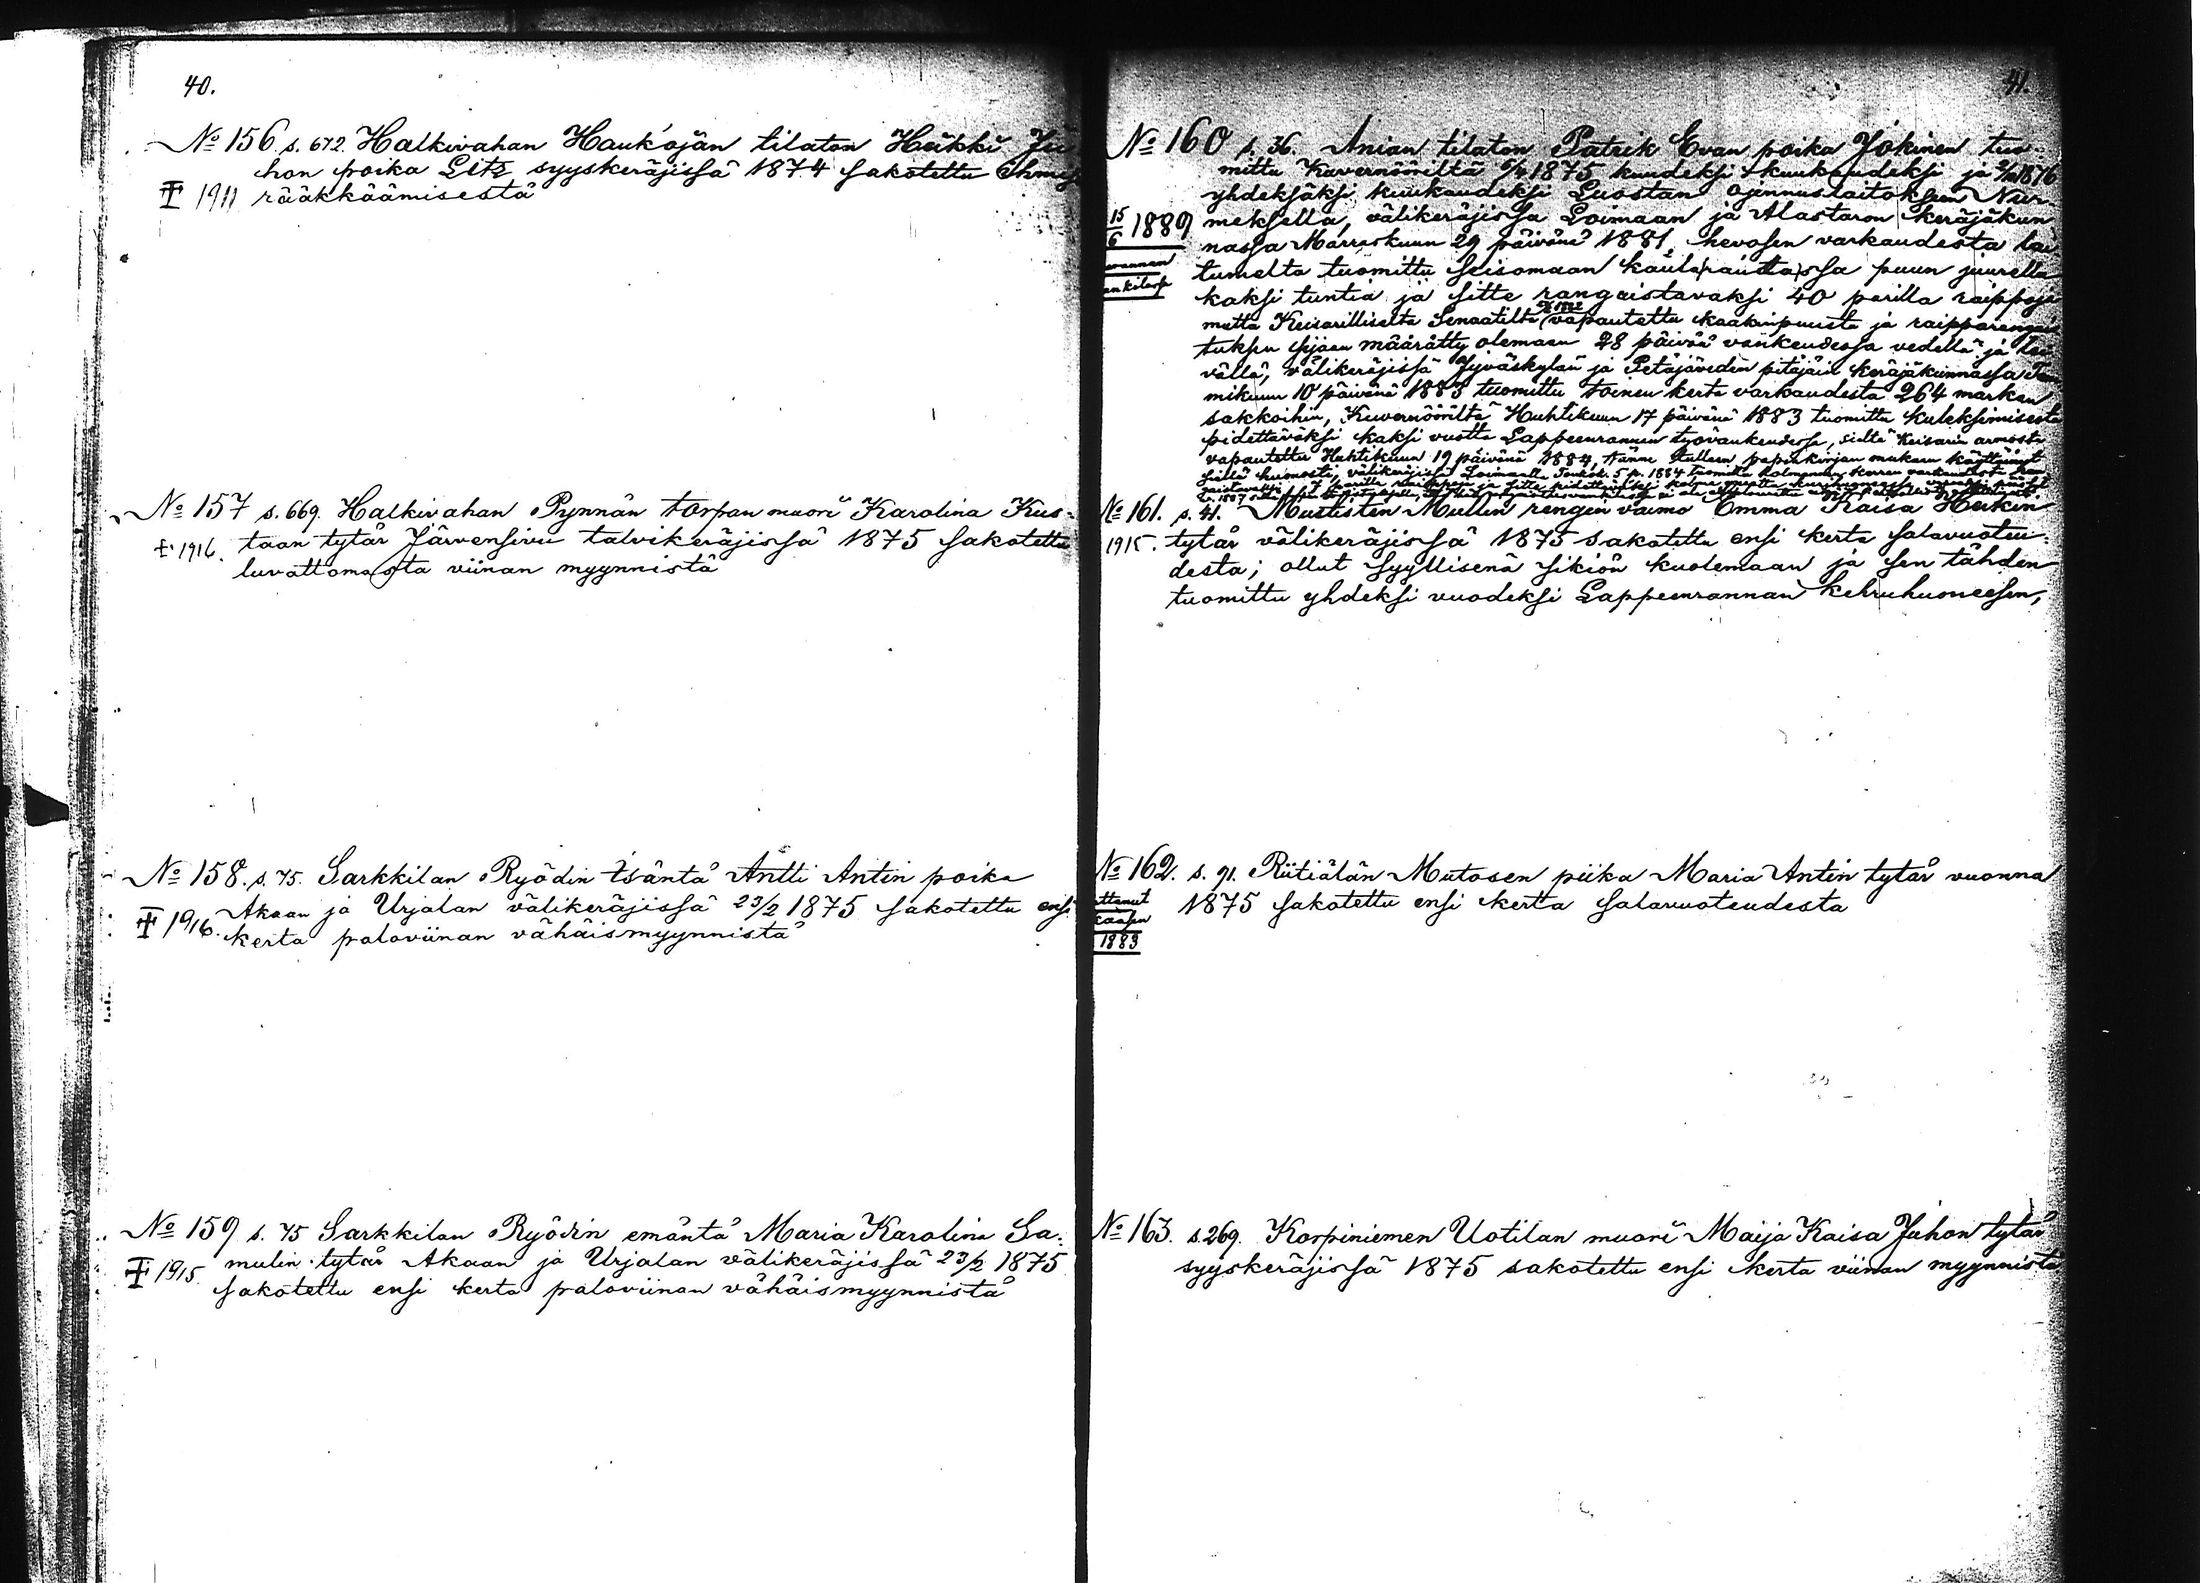 40.
№ 156. s. 672. Halkivahan Haukojan tilaton Heikki Ju
hon poika Litz syyskeräjissä 1874 sakotettu Ihmis
‡ 1911 rääkkäämisestä
№ 157 s. 669. Halkivahan Pynnän torpan muori Karolina Kus-
‡ 1916. taan tytär Järvensivu talvikeräjissä 1875 sakotettu
luvattomasta viinan myynnistä
№ 158. s. 75. Sarkkilan Ryödin isäntä Antti Antin poika
Akaan ja Urjalan välikeräjissä 23/2 1875 sakotettu ensi
‡ 1916. kerta paloviinan vähäismyynnistä
№ 159 s. 75 Sarkkilan Ryödin emäntä Maria Karolina Sa-
‡ 1915 mulin tytär Akaan ja Urjalan välikeräjissä 23/2 1875
sakotettu ensi kerta paloviinan vähäismyynnistä
41.
№ 160 s. 36. Anian tilaton Patrik Evan poika Jokinen tuo-
mittu Kuvernööriltä 1875 kuudeksi kuukaudeksi ja 1876
yhdeksäksi kuukaudeksi Luostan ojennuslaitoksen Nur-
15/6 1889 meksella, välikeräjissä Loimaan ja Alastaron keräjäkun
nassa Marraskuun 29 päivänä 1881, hevosen varkaudesta lai
tumelta tuomittu seisomaan kaularaudassa puun juurella
kaksi tuntia ja sitte rangaistavaksi 40 parilla raippoja
mutta Keisarilliselta Senaatilta vapautettu kaakinpuusta ja raipparangais
tuksen sijaan määrätty olemaan 28 päivää vankeudessa vedellä ja lei
vällä, välikeräjissä Jyväskylän ja Petäjäveden pitäjäin keräjäkunnassa Tam
mikuun 10 päivänä 1883 tuomittu toinen kerta varkaudesta 264 markan
sakkoihin, Kuvernööriltä Huhtikuun 17 päivänä 1883 tuomittu kuleksimisesta
pidettäväksi kaksi vuotta Lappeenrannan työvankeudessa, sieltä Keisarin armosta
vapautettu Huhtikuun 19 päivänä 1884, tänne tulleen papinkirjan mukaan käyttäinyt
siellä huonosti, välikeräjissä Loimaalla 1884 tuomittu kolmannen kerran varkaudesta
№ 161. s. 41. Mustisten Mullin rengin vaimo Emma Kaisa Heikin
1915. tytär välikeräjissä 1875 sakotettu ensi kerta salavuoteu-
desta; ollut syyllisenä sikiön kuolemaan ja sen tähden
tuomittu yhdeksi vuodeksi Lappeenrannan kehruhuoneesen,
№ 162. s. 91. Riitiälän Mutosen piika Maria Antin tytär vuonna
1875 sakotettu ensi kertta salavuoteudesta
1883
№ 163. s. 269. Korpiniemen Uotilan muori Maija Kaisa Juhon tytär
syyskeräjissä 1875 sakotettu ensi kerta viinan myynnistä